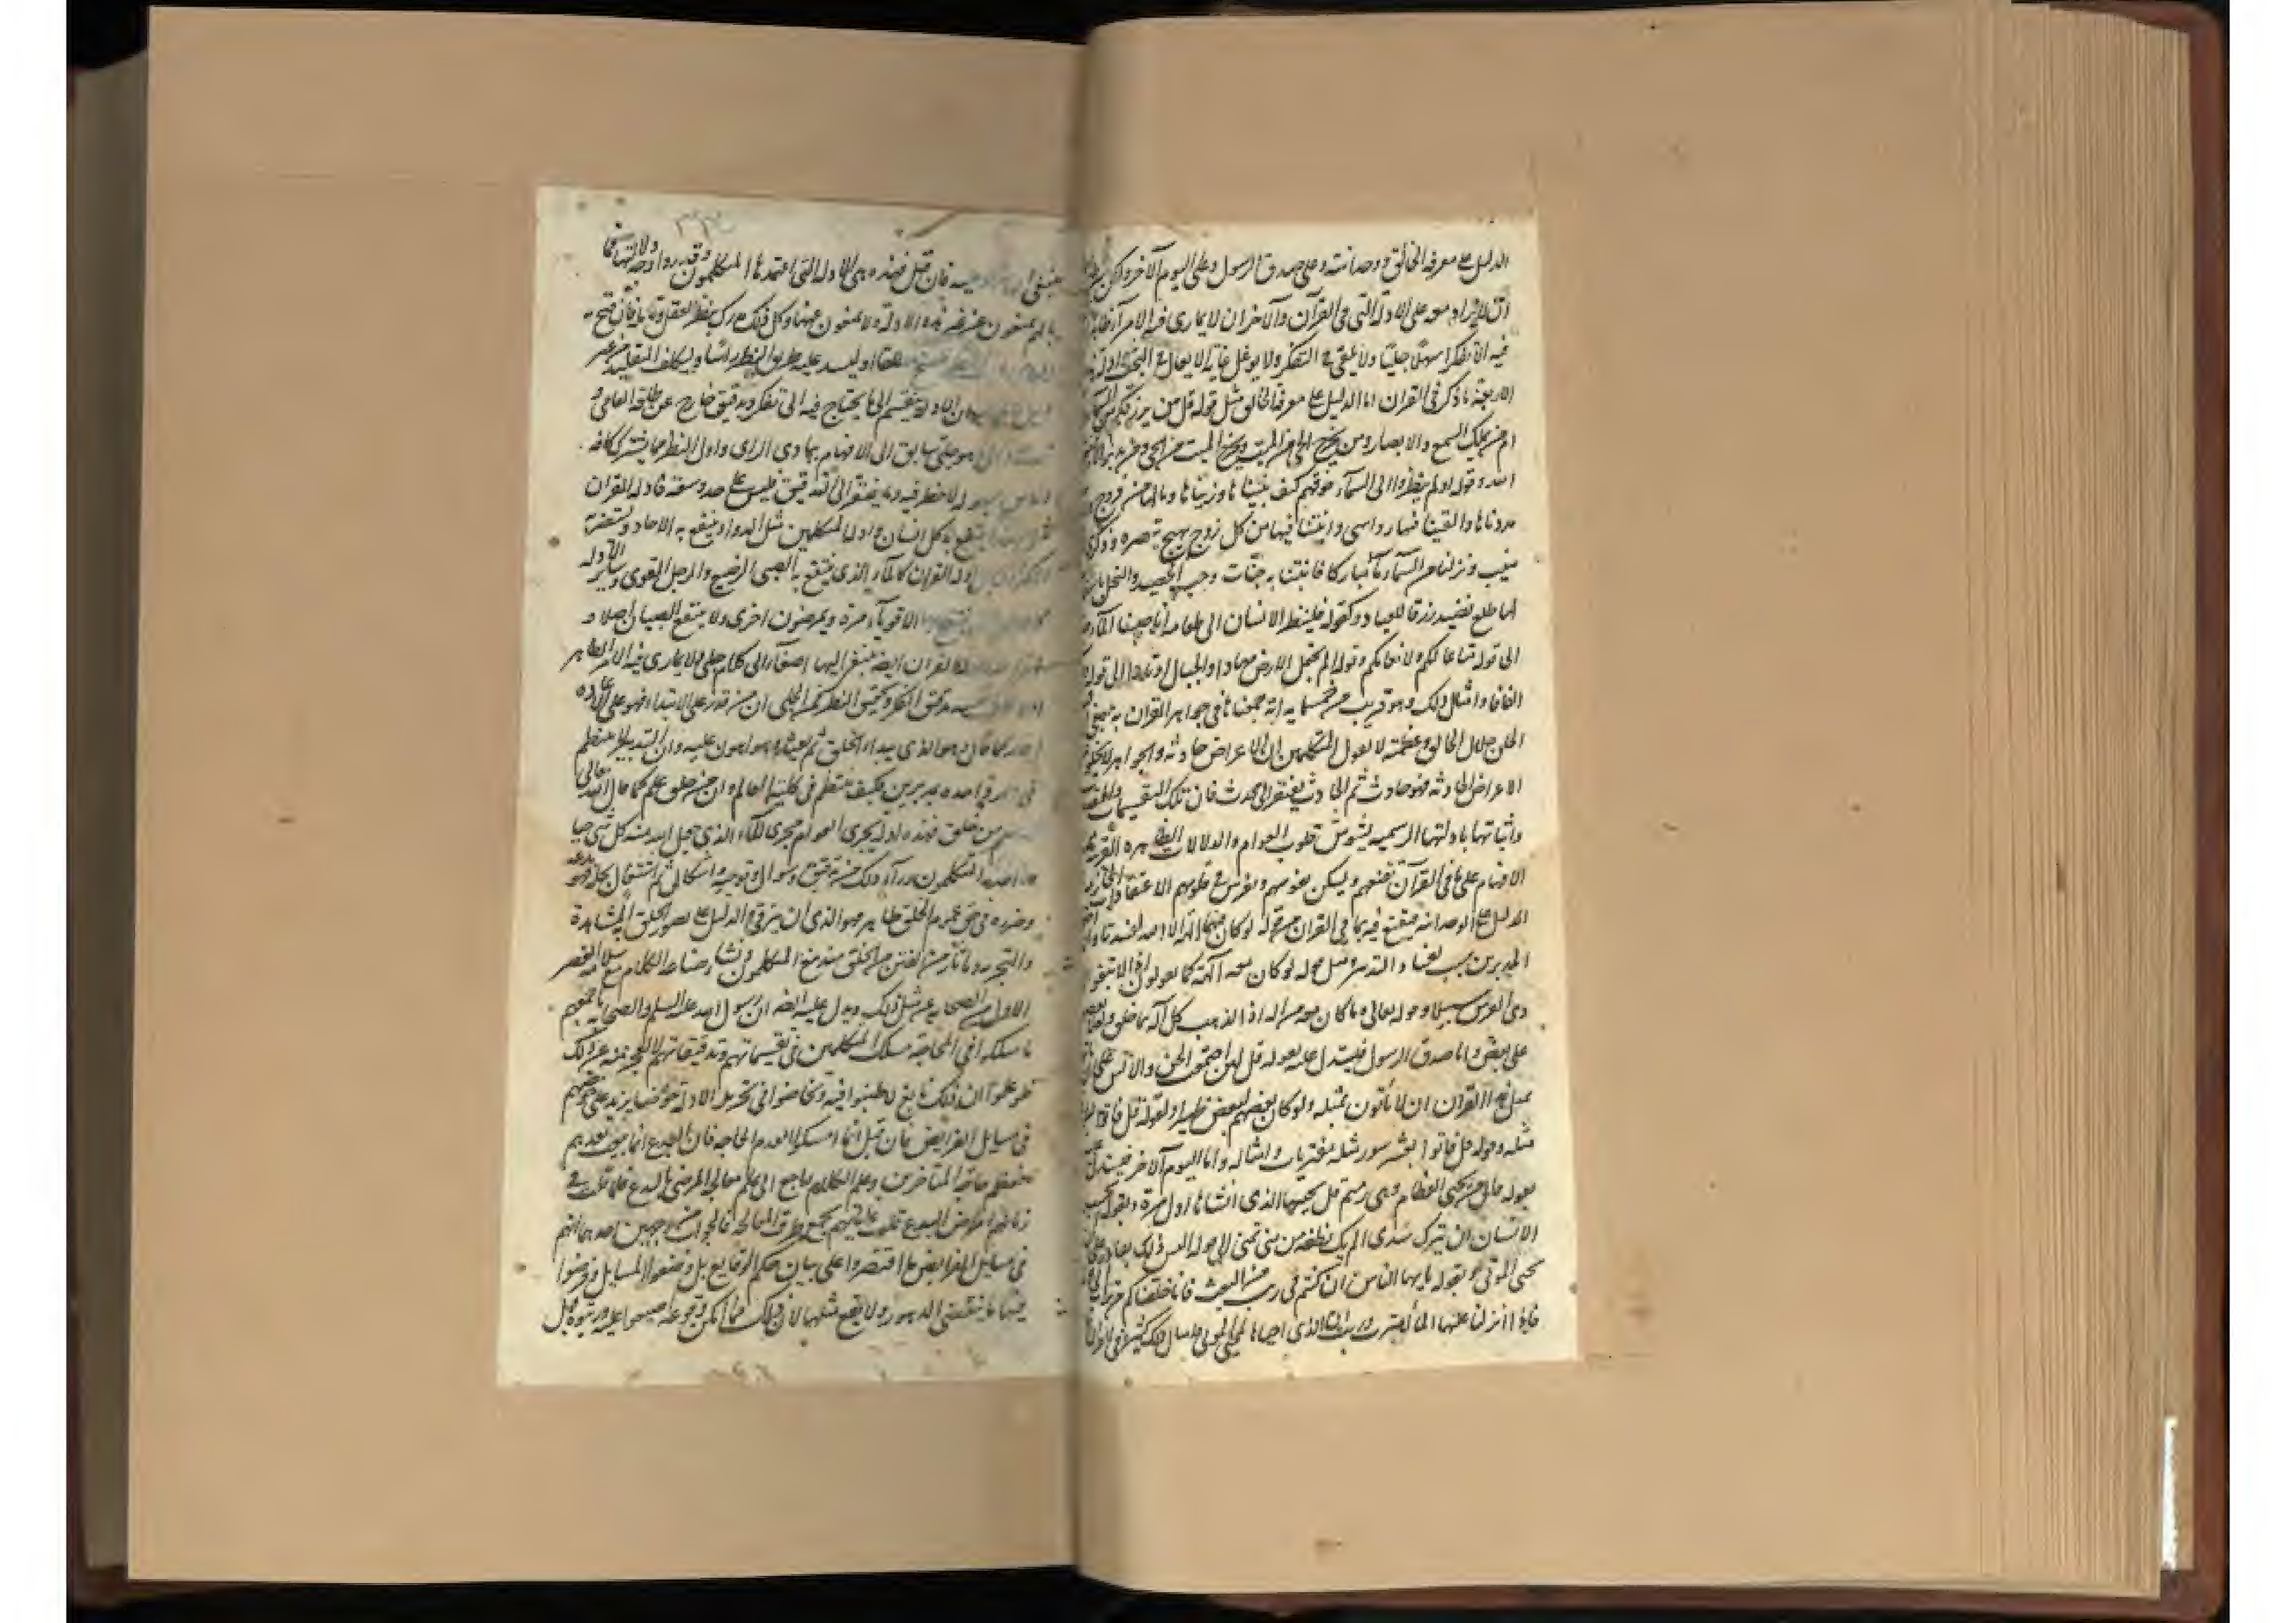 الدليل على معرفة الخالق و وحدانيته وعلى صدق الرسول وعلى اليوم الآخر ولكن بشرطين
ان لا يزاد معه على الادلة التي في القرآن والآخر ان لا يمارى فيه الا مرآء ظاهرا
فيه الا تفكرا سهلا جليا ولا يمعن في التفكر ولا يوغل غاية الايغال في البحث وادلة
الاربعة ما ذكر في القران اما الدليل على معرفة الخالق مثل قوله قل من يرزقكم من السمآء
ام من يملك السمع والابصار ومن يخرج الحي من الميت ويخرج الميت من الحي ومن يدبر الامر
الله وقوله اولم ينظروا الى السمآء فوقهم كيف بنيناها وزيناها وما لها من فروج
مددناها والقينا فيها رواسي وانبتنا فيها من كل زوج بهيج تبصرة وذكرى
منيب ونزلنا من السمآء مآء مباركا فانبتنا به جنات وحب الحصيد والنخل
لها طلع نضيد رزقا للعباد وكقوله فلينظر الانسان الى طعامه انا صببنا المآء
الى قوله متاعا لكم ولانعامكم وقوله الم نجعل الارض مهادا والجبال اوتادا الى قوله
الفافا وامثال ذلك وهو قريب من خمسمايه اية جمعناها في جواهر القرآن
الخلق جلال الخالق وعظمته لا بقول المتكلمين ان الاعراض حادثه والجواهر لا تخلو
الاعراض الحادثه فهو حادث ثم الحادث يفتقر الى محدث فان تلك التقسيمات
واثباتها بادلتها الرسميه يشوش قلوب العوام والدلالات الظاهرة القريبه
الافهام على ما في القرآن تنفعهم وتسكن نفوسهم وتغرس في قلوبهم الاعتقادات
الدليل على الوحدانيه فيقنع فيه بما في القران من قوله لو كان فيهما الهة الا الله لفسدتا
المدبرين سبب لفساد التدبير ومثل قوله لو كان معه آلهة كما يقولون اذا لابتغوا
ذي العرش سبيلا وقوله تعالى وما كان معه من اله اذا لذهب كل آله بما خلق ولعلا
على بعض واما صدق الرسول فيستدل عليه بقوله قل لئن اجتمعت الجن والانس على
بمثل هذا القران ان لا يأتون بمثله ولو كان بعضهم لبعض ظهيرا وبقوله قل فاتوا
مثله وقوله قل فاتوا بعشر سور مثله مفتريات وامثاله واما اليوم الآخر فيستدل
بقوله قال من يحيي العظام وهي رميم قل يحييها الذي انشاها اول مرة وبقوله ايحسب
الانسان ان يترك سدى الم يك نطفة من مني تمنى الى قوله اليس ذلك بقادر على
يحيي الموتى وبقوله يايها الناس ان كنتم في ريب من البعث فانا خلقناكم من تراب
فاذا انزلنا عليها المآء اهتزت وربت ان الذي احياها لمحيي الموتى وامثال ذلك كثير في القران
فان قيل فهذه هي الادلة التي اعتمدها المتكلمون وقد روا وجه دلالتها فما
بالهم يمنعون عن تقرير هذه الادلة ولا يمنعون عنها وكل ذلك مدرك بنظر العقل وتامله فان فتح
فليفتح مطلقا او ليسد عليه طريق النظر راسا وليكلف التقليد من غير
الادلة تنقسم الى ما يحتاج فيه الى تفكر وتدقيق خارج عن طاقة العامي و
الى ما هو جلي سابق الى الافهام ببادي الراى واول النظر مما يشترك كافة
الناس بسهوله لا خطر فيه وما يفتقر الى التدقيق فليس على حد وسعه فادلة القران
ينتفع به كل انسان وادلة المتكلمين مثل الدواء ينتفع به الاحاد ويستضر
بل ادلة القران كالمآء الذي ينتفع به الصبي الرضيع والرجل القوى وساير الادله
الاقويآء مرة ويمرضون اخرى ولا ينتفع الصبيان اصلا و
القران ايضا ينبغي اليها اصغآء الى كلام جلي ولا يمارى فيه الا مرآء ظاهرا
تدقيق الفكر وتحقيق النظر فمن الجلي ان من قدر على الابتداء فهو على الاعادة
اقدر كما قال وهو الذي يبداء الخلق ثم يعيده وهو اهون عليه وان التدبير لا ينتظم
في دار واحدة بمدبرين فكيف ينتظم في كلية العالم وان من خلق علم كما قال الله تعالى
من خلق فهذه ادلة تجرى العوام مجرى المآء الذي جعل الله منه كل شئ حيا
احدثه المتكلمون ورآء ذلك من تدقيق وسؤال وتوجيه واشكال ثم اشتغال بحله فهو بدعه
وضرره في حق عموم الخلق ظاهر فهو الذي ان يتوقى والدليل على تضرر الخلق المشاهدة
والتجربه وما ثار من الفتن بين الخلق منذ نبغ المتكلمون وفشا صناعة الكلام مع سلامة العصر
الاول من الصحابة عن مثل ذلك ويدل عليه ايضا ان رسول الله عليه السلم والصحابه باجمعهم
ما سلكوا في المحاجة مسلك المتكلمين في تقسيماتهم وتدقيقاتهم لا لعجز منهم عن ذلك
فلو علموا ان ذلك نافع لاطنبوا فيه وخاضوا في تحرير الادله خوضا يزيد على خوضهم
في مسايل الفرايض فان قيل انما امسكوا لعدم الحاجه فان البدع انما نبغت بعدهم
فعظم حاجة المتاخرين وعلم الكلام راجع الى علم معالجة المرضى بالبدع فلما قلت في
زمانهم امراض البدع قلت عنايتهم بجمع طرق المعالجة فالجواب من وجهين احدهما انهم
في مسايل الفرايض ما اقتصروا على بيان حكم الوقايع بل وضعوا المسايل وفرضوا
فيها ما ينقضي الدهور ولا يقع مثلها لان ذلك مما امكن وقوعه فصنفوا علمه ورتبوه قبل